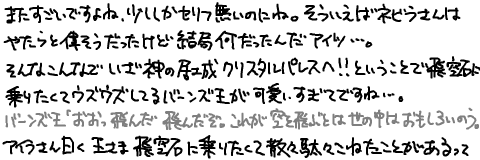 またすごいですよね、少ししかセリフ無いのにね。そういえばネビラさんは
やたらと偉そうだったけど結局何だったんだアイツ…。
そんなこんなで いざ神の居城 クリスタルパレスへ!!ということで飛空石に
乗りたくてウズウズしてるバーンズ王が可愛いすぎてですね…。
バーンズ王「おおっ飛んだ 飛んだぞ。これが空を飛ぶとは世の中はおもしろいのう。
アイラさん曰く 王さま 飛空石に乗りたくて散々駄々こねたことがあるって